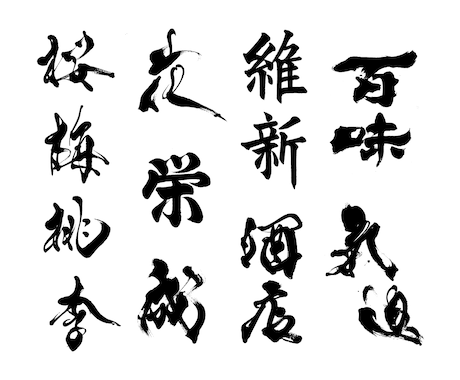 百味
気迫
維新
酒店
花
栄
成
桜梅桃李